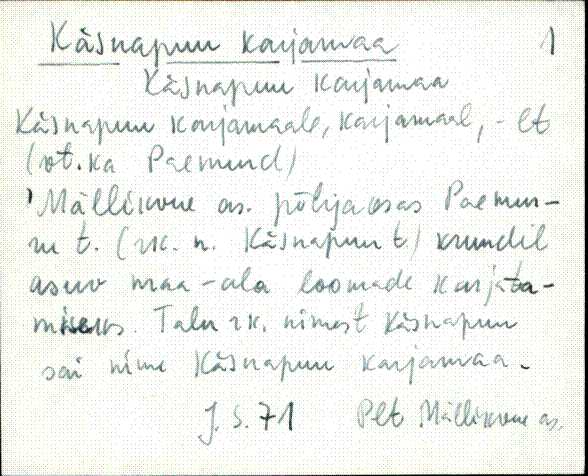 Käsnapuu karjamaa 1
Käsnapuu karjamaa
Käsnapuu karjamaale, karjamaal, -lt
(vt. ka Paemurd)
'Mällikvere as. põhjaosas Paemur-
ru t. (rk. n. Käsnapuu t) krundil
asuv maa-ala loomade karjata-
miseks. Talu rk. nimest Käsnapuu
sai nime Käsnapuu karjamaa.
J. S. 71 Plt Mällikvere as.